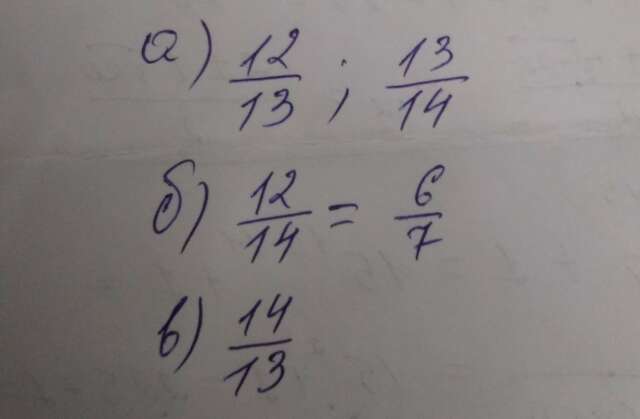 а) 12/13 ; 13/14
б) 12/14 = 6/7
в) 14/13